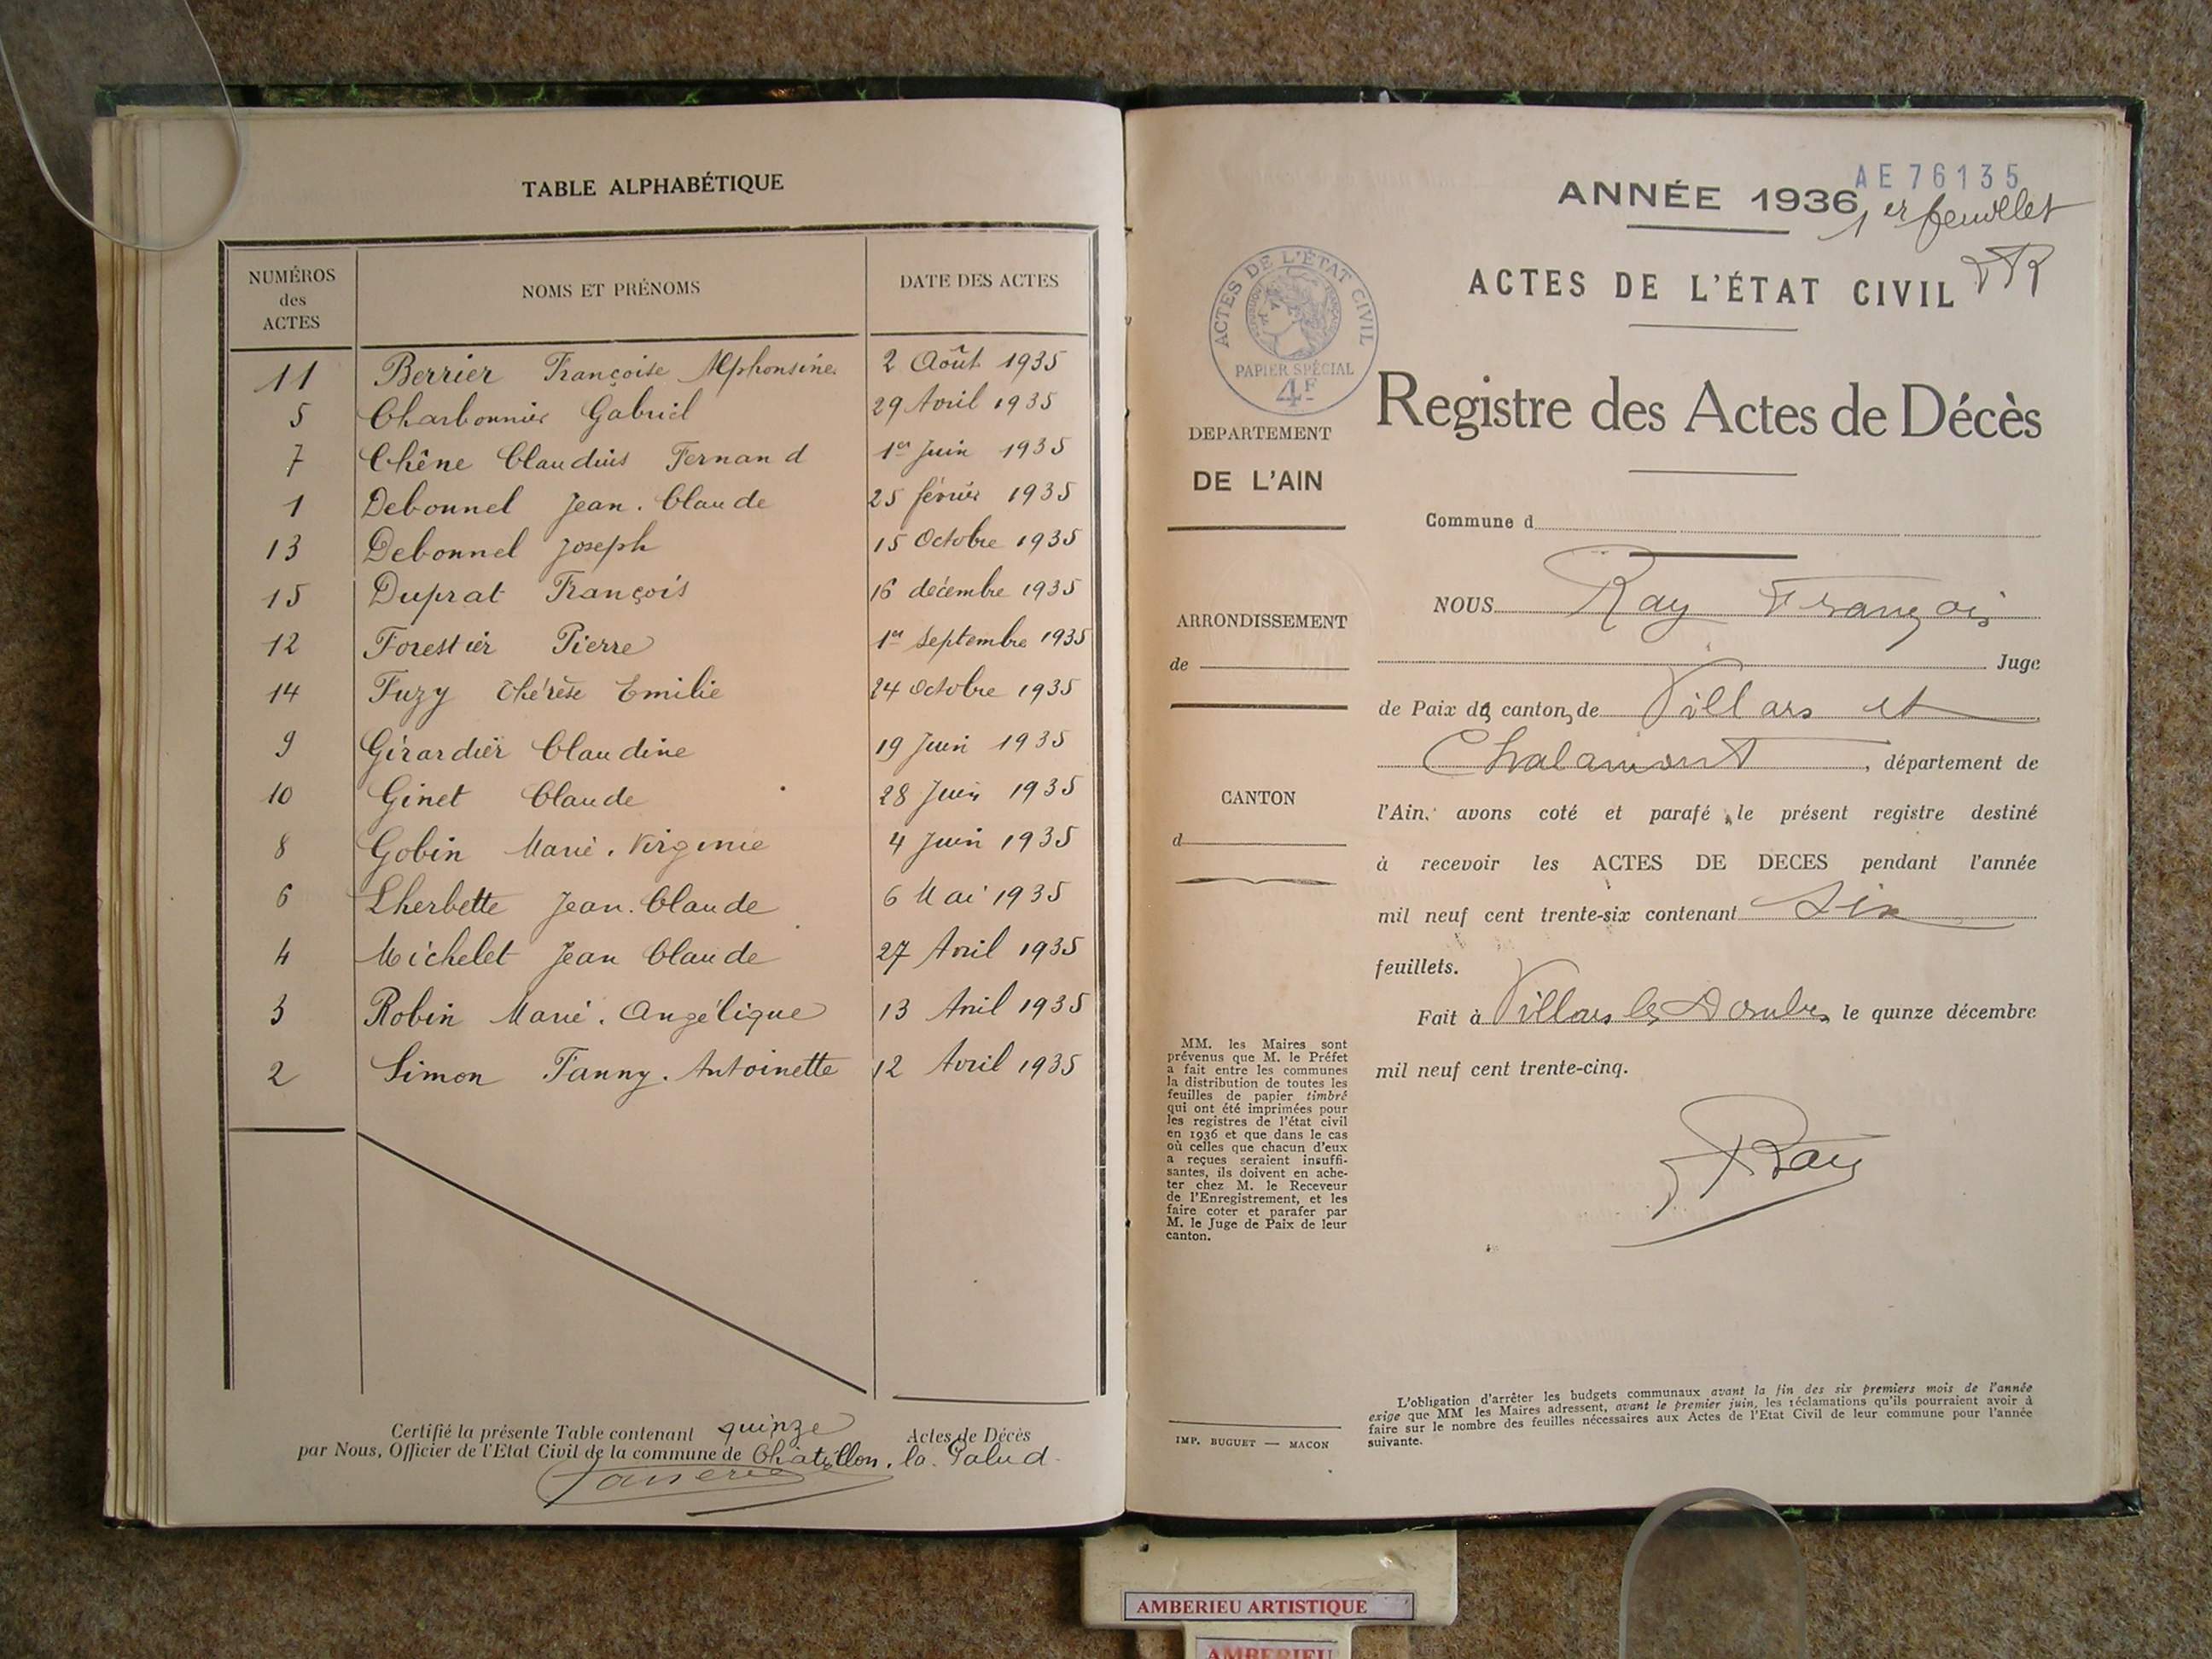 TABLE ALPHABÉTIQUE
NUMÉROS des ACTES NOMS ET PRÉNOMS DATE DES ACTES
11 Berrier Françoise Alphonsine 2 Août 1935
5 Charbonnier Gabriel 29 Avril 1935
7 Chêne Claudius Fernand 1er Juin 1935
1 Debonnel Jean. Claude 25 février 1935
13 Debonnel Joseph 15 Octobre 1935
15 Duprat François 16 décembre 1935
12 Forestier Pierre 1er Septembre 1935
14 Fuzy Thérèse Emilie 24 Octobre 1935
9 Girardier Claudine 19 Juin 1935
10 Ginet Claude 28 Juin 1935
8 Gobin Marie. Virginie 4 Juin 1935
6 Lherbette Jean. Claude 6 Mai 1935
4 Michelet Jean Claude 27 Avril 1935
3 Robin Marie. Angélique 13 Avril 1935
2 Simon Fanny. Antoinette 12 Avril 1935
Certifié la présente Table contenant quinze Actes de Décès
par Nous, Officier de l'Etat Civil de la commune de Châtillon. la. Palud.
ANNÉE 1936
AE 76135
1er feuillet
FR
ACTES DE L'ÉTAT CIVIL
ACTES DE L'ÉTAT CIVIL
PAPIER SPÉCIAL
4F
Registre des Actes de Décès
DEPARTEMENT
DE L'AIN
Commune d
ARRONDISSEMENT
de
CANTON
d
NOUS Ray François
Juge
de Paix des cantons de Villars et
Chalamont, département de
l'Ain, avons coté et parafé le présent registre destiné
à recevoir les ACTES DE DECES pendant l'année
mil neuf cent trente-six contenant six
feuillets.
Fait à Villars les Dombes le quinze décembre
mil neuf cent trente-cinq.
FRay
MM. les Maires sont
prévenus que M. le Préfet
a fait entre les communes
la distribution de toutes les
feuilles de papier timbré
qui ont été imprimées pour
les registres de l'état civil
en 1936 et que dans le cas
où celles que chacun d'eux
a reçues seraient insuffi-
santes, ils doivent en ache-
ter chez M. le Receveur
de l'Enregistrement, et les
faire coter et parafer par
M. le Juge de Paix de leur
canton.
IMP. BUGUET — MACON
L'obligation d'arrêter les budgets communaux avant la fin des six premiers mois de l'année
exige que MM les Maires adressent, avant le premier juin, les réclamations qu'ils pourraient avoir à
faire sur le nombre des feuilles nécessaires aux Actes de l'Etat Civil de leur commune pour l'année
suivante.
AMBERIEU ARTISTIQUE
AMBERIEU